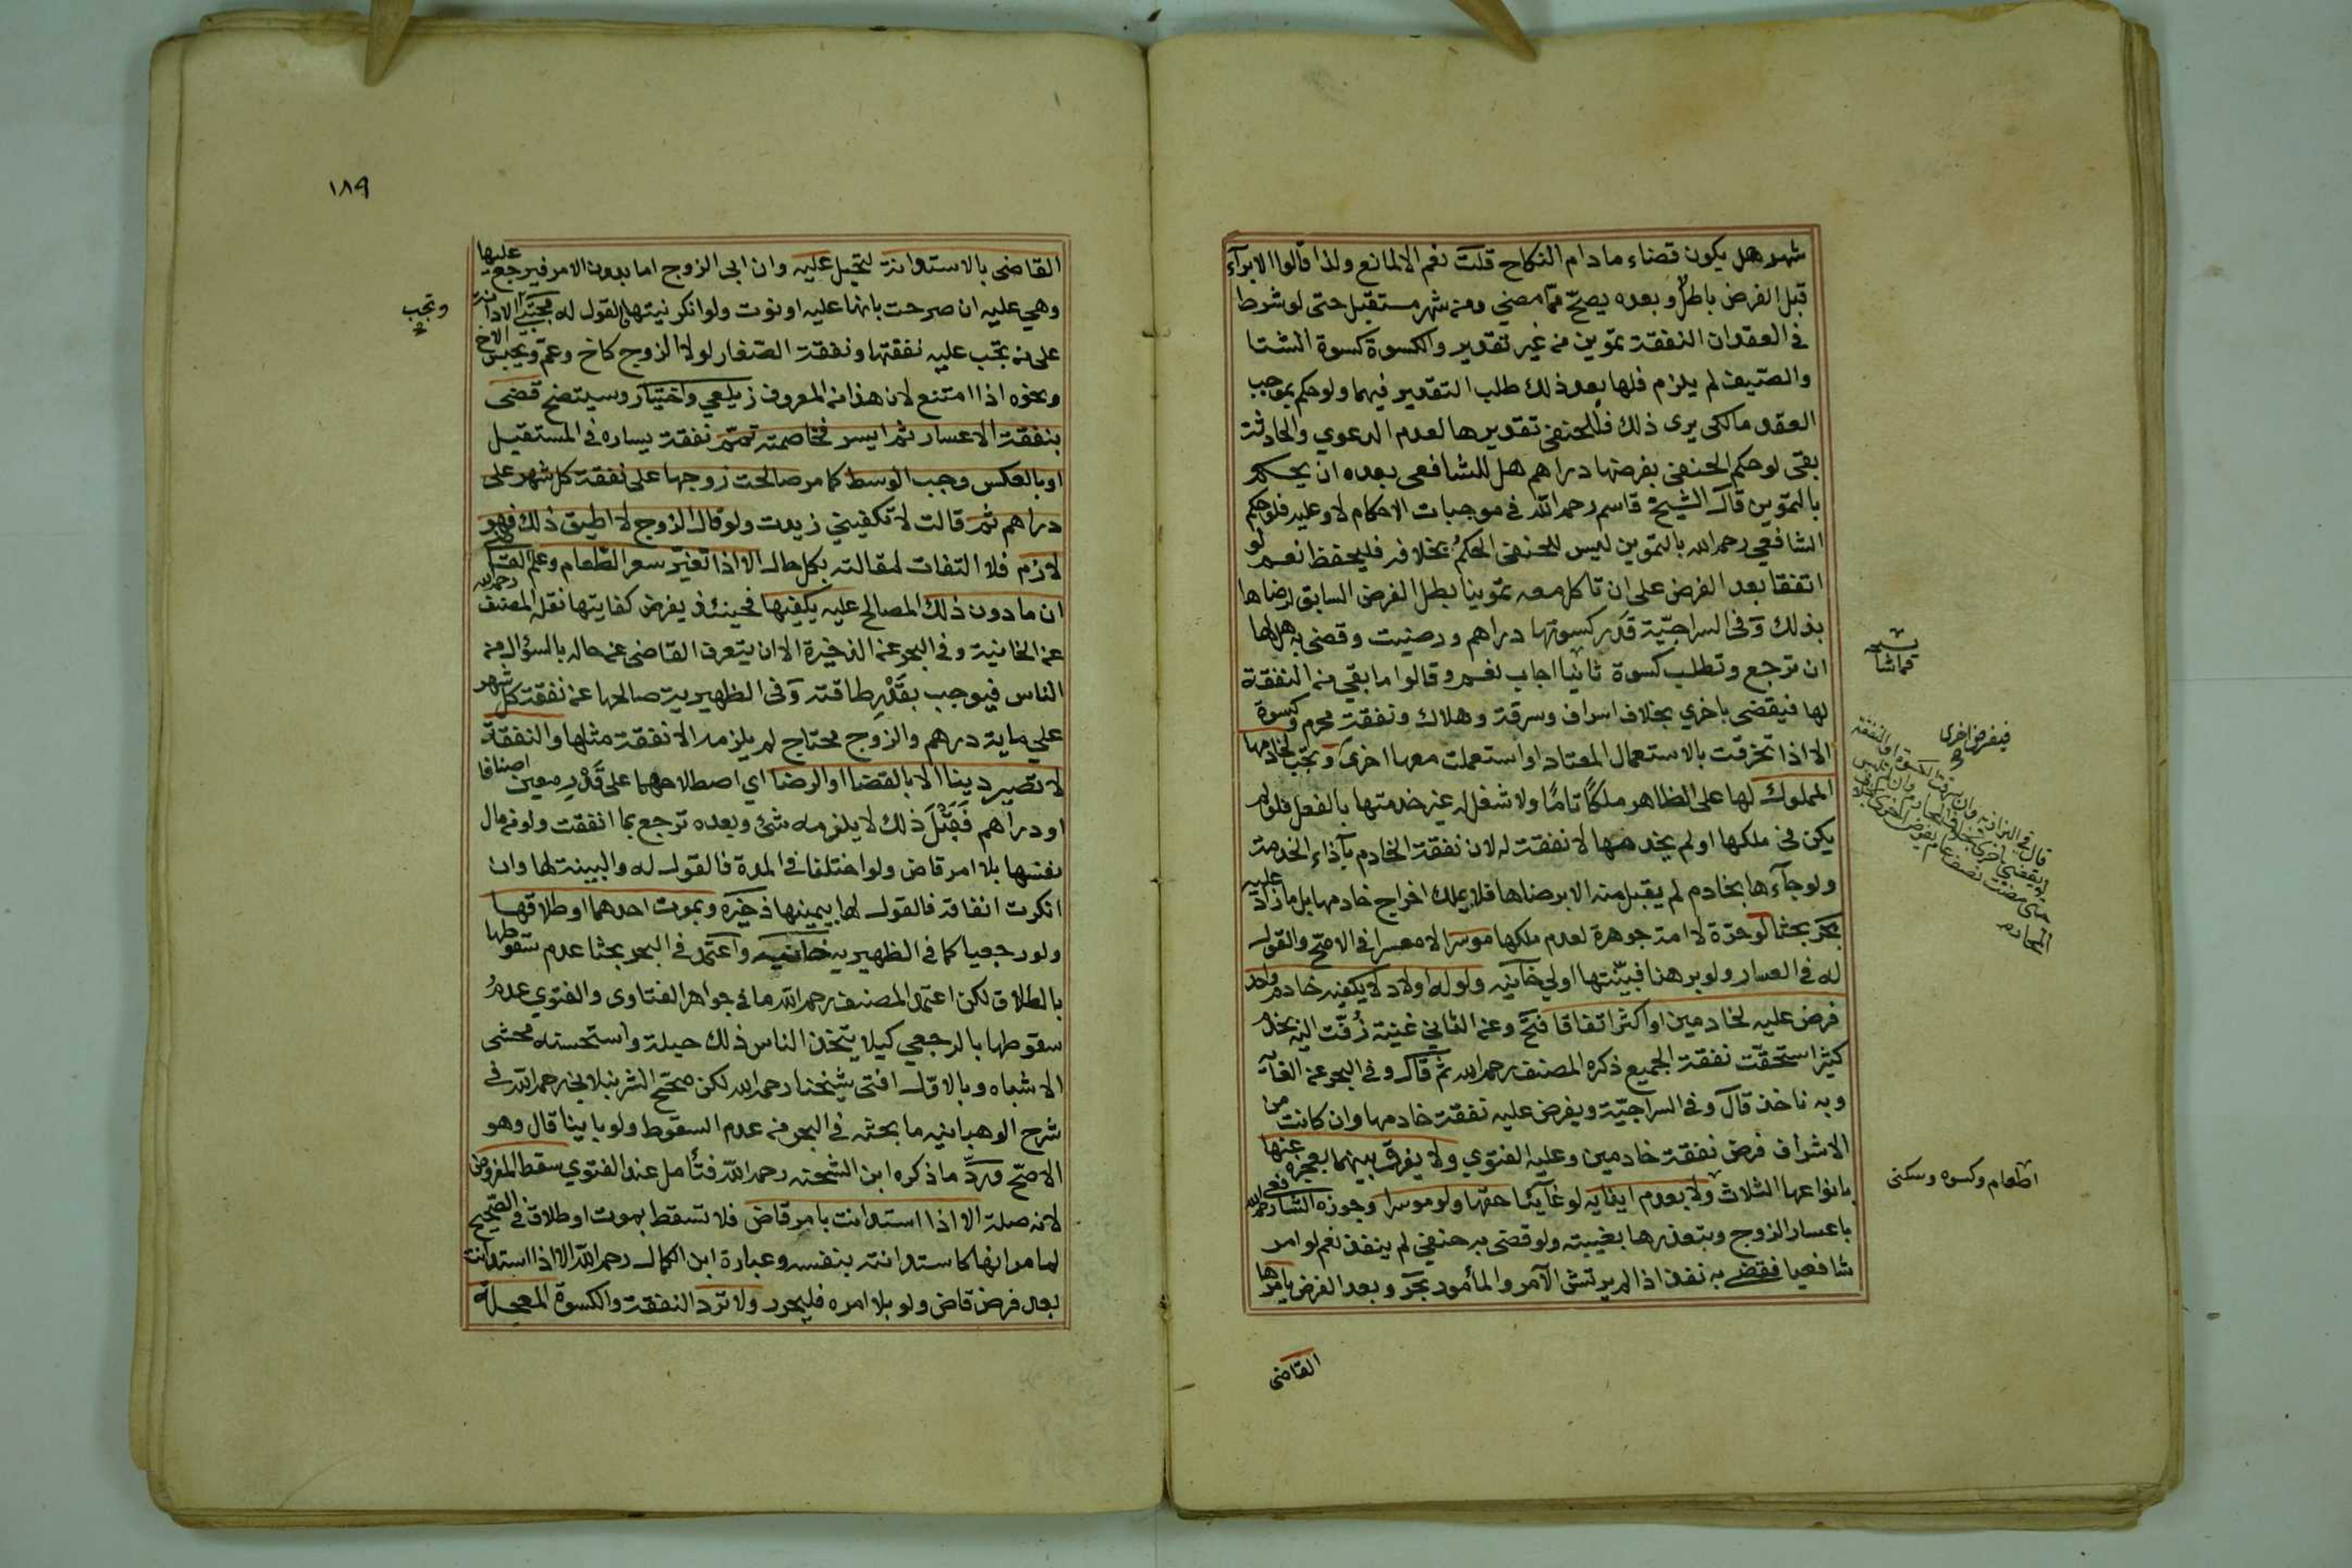 شهر هل يكون قضاء مادام النكاح قلت نعم الا لمانع ولذا قالوا الابرآء
قبل الفرض باطل وبعده يصحّ ممّا مضي ومن شهر مستقبل حتى لو شرط
في العقد ان النفقة تموين من غير تقدير والكسوة كسوة الشتا
والصّيف لم يلزم فلها بعد ذلك طلب التقدير فيهما ولو حكم بموجب
العقد مالكي يرى ذلك فللحنفي تقديرها لعدم الدعوي والحادثة
بقى لو حكم الحنفي بفرضها دراهم هل للشافعي بعده ان يحكم
بالتموين قال الشيخ قاسم رحمه الله في موجبات الاحكام لا وعليه فلو حكم
الشافعي رحمه الله بالتموين ليس للحنفي الحكم بخلافه فليحفظ نعم لو
اتفقا بعد الفرض على ان تاكل معه تموينا بطل الفرض السابق لرضاها
بذلك وفي السراجيّة قدّر كسوتها دراهم ورضيت وقضى به هل لها
ان ترجع وتطلب كسوة ثانيا اجاب نعم وقالوا ما بقي من النفقة
لها فيقضى باخري بخلاف اسراف وسرقة وهلاك ونفقة محرم وكسوة
الا اذا تخرقت بالاستعمال المعتاد او استعملت معها اخرى وتجب لخادمها
المملوك لها على الظاهر ملكًا تامًا ولا شغل له غير خدمتها بالفعل فلو لم
يكن في ملكها او لم يخدمها لا نفقة له لان نفقة الخادم بآذاء الخدمة
ولو جآءها بخادم لم يقبل منه الا برضاها فلا يملك اخراج خادمها بل ما زاد عليه
بحر بحثا لو حرّة لا امة جوهرة لعدم ملكها موسرا لا معسرا في الاصحّ والقول
له في العسار ولو برهنا فبيّنتها اولي خانيه ولو له اولاد لا يكفيه خادم واحد
فرض عليه لخادمين او اكثر اتفاقا فتح وعن الثاني غنية زُفّت اليه بخدم
كثير استحقت نفقة الجميع ذكره المصنف رحمه الله ثم قال وفي البحر عن الغاية
وبه ناخذ قال وفي السراجيّة ويفرض عليه نفقة خادمها وان كانت من
الاشراف فرض نفقة خادمين وعليه الفتوي ولا يفرق بينهما بعجزه عنها
بانواعها الثلاث ولا بعدم ايفايه لو غآئبا حقها ولو موسرا وجوزه الشافعي رحمه الله
باعسار الزوج وبتعذرها بغيبته ولو قضى به حنفي لم ينفذ نعم لو امر
شافعيا فقضي به نفذ اذا لم يرتش الآمر والمأمور بحر وبعد الفرض يامرها
القاضى
فيفرض اخرى
اطعام وكسوه وسكنى
١٨٩
القاضى بالاستدانة لتحيل عليه وان ابى الزوج اما بدون الامر فيرجع عليها
وهي عليه ان صرحت بانها عليه او نوت ولو انكر نيتها فالقول له مجتبى الادانة
وتجب
على من تجب عليه نفقتها ونفقة الصّغار لولا الزوج كاخ وعم ويحبس الاخ
ونحوه اذا امتنع لان هذا من المعروف زيلعي واختيار وسيتضح قضى
بنفقة الاعسار ثم ايسر فخاصمته تمّم نفقة يساره في المستقبل
او بالعكس وجب الوسط كما مر صالحت زوجها على نفقة كل شهر على
دراهم ثم قالت لا تكفيني زيدت ولو قال الزوج لا اطيق ذلك فهو
لازم فلا التفات لمقالته بكل حال الا اذا تغيّر سعر الطعام وعلم القاضي
ان ما دون ذلك المصالح عليه يكفيها فحينئذ يفرض كفايتها نقله المصنف رحمه الله
عن الخانية وفي البحر عن الذخيرة الا ان يتعرف القاضى عن حاله بالسؤال من
الناس فيوجب بقَدْرِ طاقته وفي الظهيرية صالحها عن نفقة كل شهر
علي ماية درهم والزوج محتاج لم يلزمه الا نفقة مثلها والنفقة
لا تصير دينا الا بالقضا او الرضا اي اصطلاحهما على قَدْرٍ معين اصنافا
او دراهم فَقَبْلَ ذلك لا يلزمه شئ وبعده ترجع بما انفقت ولو من مال
نفسها بلا امر قاض ولو اختلفا في المدة فالقول له والبينة لها وان
انكرت انفاقه فالقول لها بيمينها ذخيره وبموت احدهما او طلاقها
ولو رجعيا كما في الظهيريه خانيه واعتمد في البحر بحثا عدم سقوطها
بالطلاق لكن اعتمد المصنف رحمه الله ما في جواهر الفتاوى والفتوي عدمُ
سقوطها بالرجعي كيلا يتخذ الناس ذلك حيلة واستحسنه محشى
الاشباه وبالاول افتى شيخنا رحمه الله لكن صحّح الشرنبلالي رحمه الله في
شرح الوهبانيه ما بحثه في البحر من عدم السقوط ولو باينا قال وهو
الاصحّ وردَّ ما ذكره ابن الشحنه رحمه الله فتأمل عند الفتوي سقط المفروض
لانه صلة الا اذا استدانت بامر قاض فلا تسقط بموت او طلاق في الصحيح
لما مر انها كاستدانته بنفسه وعبارة ابن الكمال رحمه الله الا اذا استدانت
بعد فرض قاض ولو بلا امره فليحرر ولا ترد النفقة والكسوة المعجلة